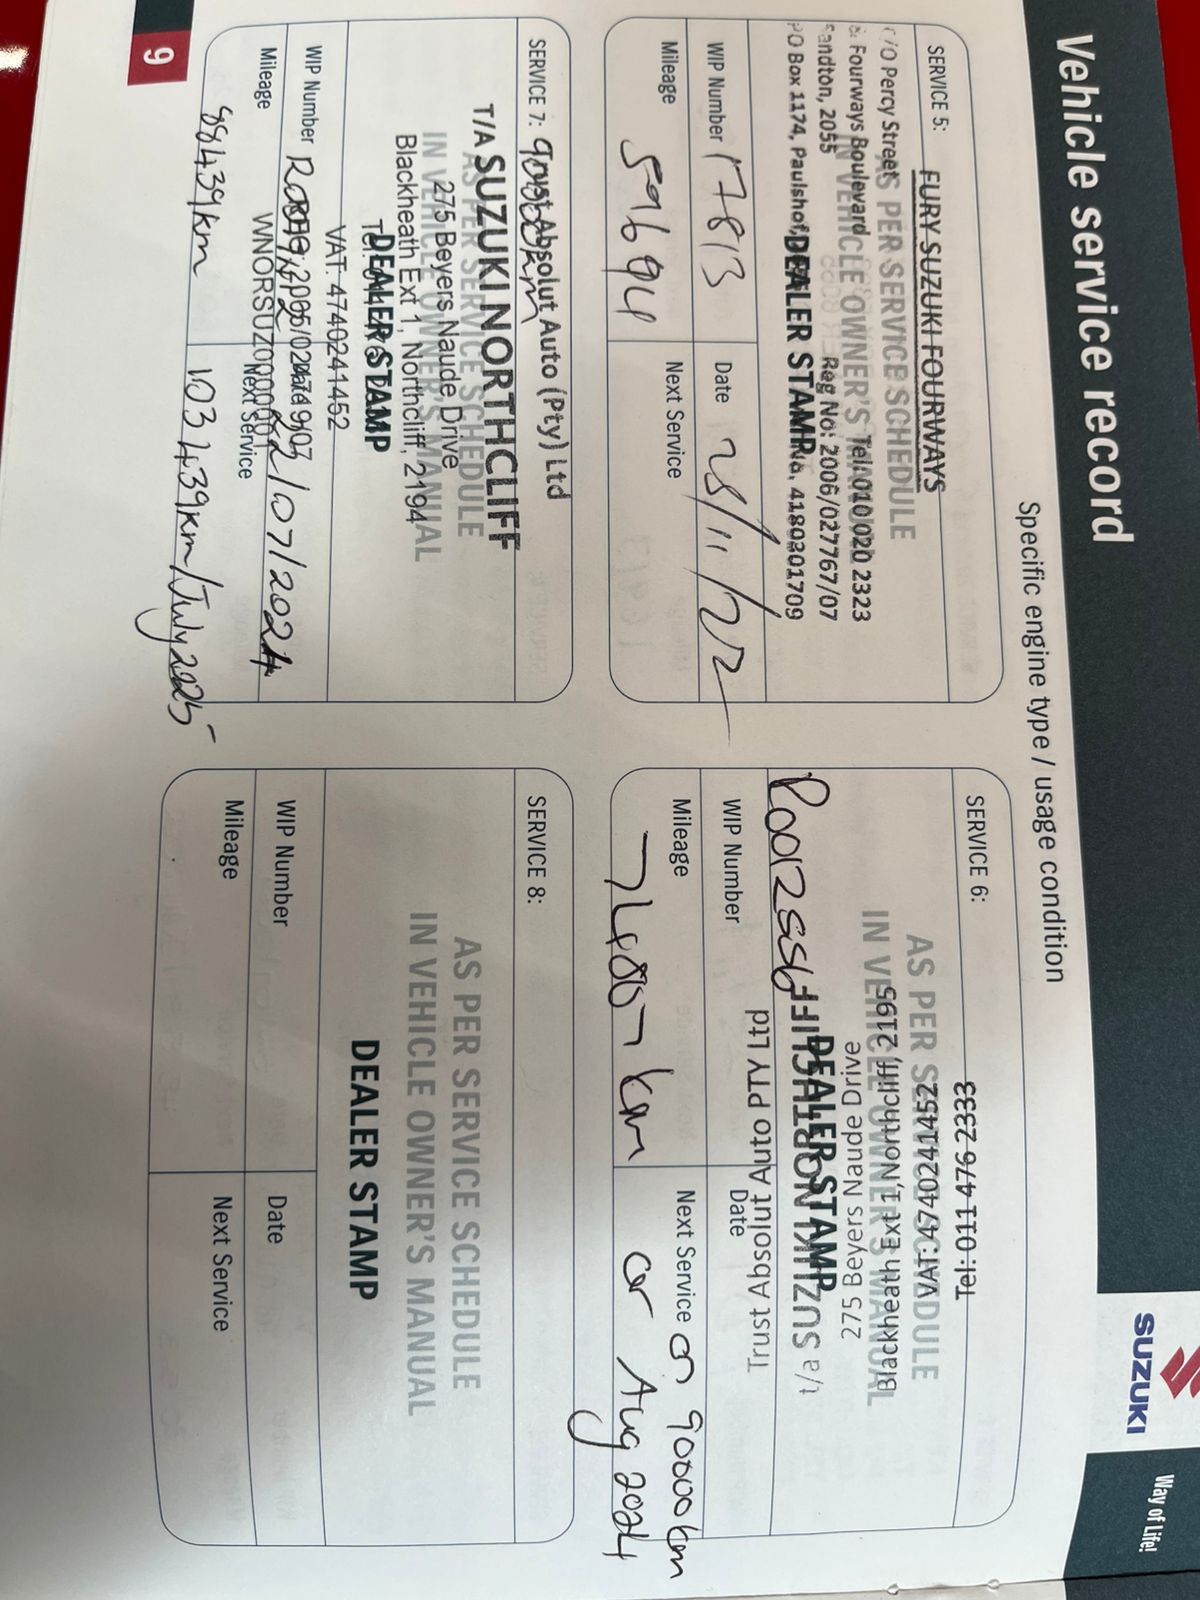 Vehicle service record
SUZUKI
Way of Life!
Specific engine type / usage condition
SERVICE 5:
FURY SUZUKI FOURWAYS
C/O Percy Street
& Fourways Boulevard
Tel: 010 020 2323
Sandton, 2055
Reg No: 2006/027767/07
PO Box 1174, Paulshof,
4180201709
AS PER SERVICE SCHEDULE
IN VEHICLE OWNER'S MANUAL
DEALER STAMP
WIP Number 17813
Date 28/11/22
Mileage 59694
Next Service
SERVICE 6:
AS PER SERVICE SCHEDULE
IN VEHICLE OWNER'S MANUAL
DEALER STAMP
Trust Absolut Auto PTY Ltd
t/a SUZUKI NORTHCLIFF
275 Beyers Naude Drive
Blackheath Ext 1, Northcliff, 2195
VAT: 4740241452
Tel: 011 476 2333
WIP Number
Date
Mileage 74807 km
Next Service on 90000km
or Aug 2024
SERVICE 7: 90000km
Trust Absolut Auto (Pty) Ltd
T/A SUZUKI NORTHCLIFF
275 Beyers Naude Drive
Blackheath Ext 1, Northcliff, 2194
VAT: 4740241452
AS PER SERVICE SCHEDULE
IN VEHICLE OWNER'S MANUAL
DEALER STAMP
WIP Number
Date 22/07/2024
Mileage 88439km
Next Service 103439km/July 2025
SERVICE 8:
AS PER SERVICE SCHEDULE
IN VEHICLE OWNER'S MANUAL
DEALER STAMP
WIP Number
Date
Mileage
Next Service
9